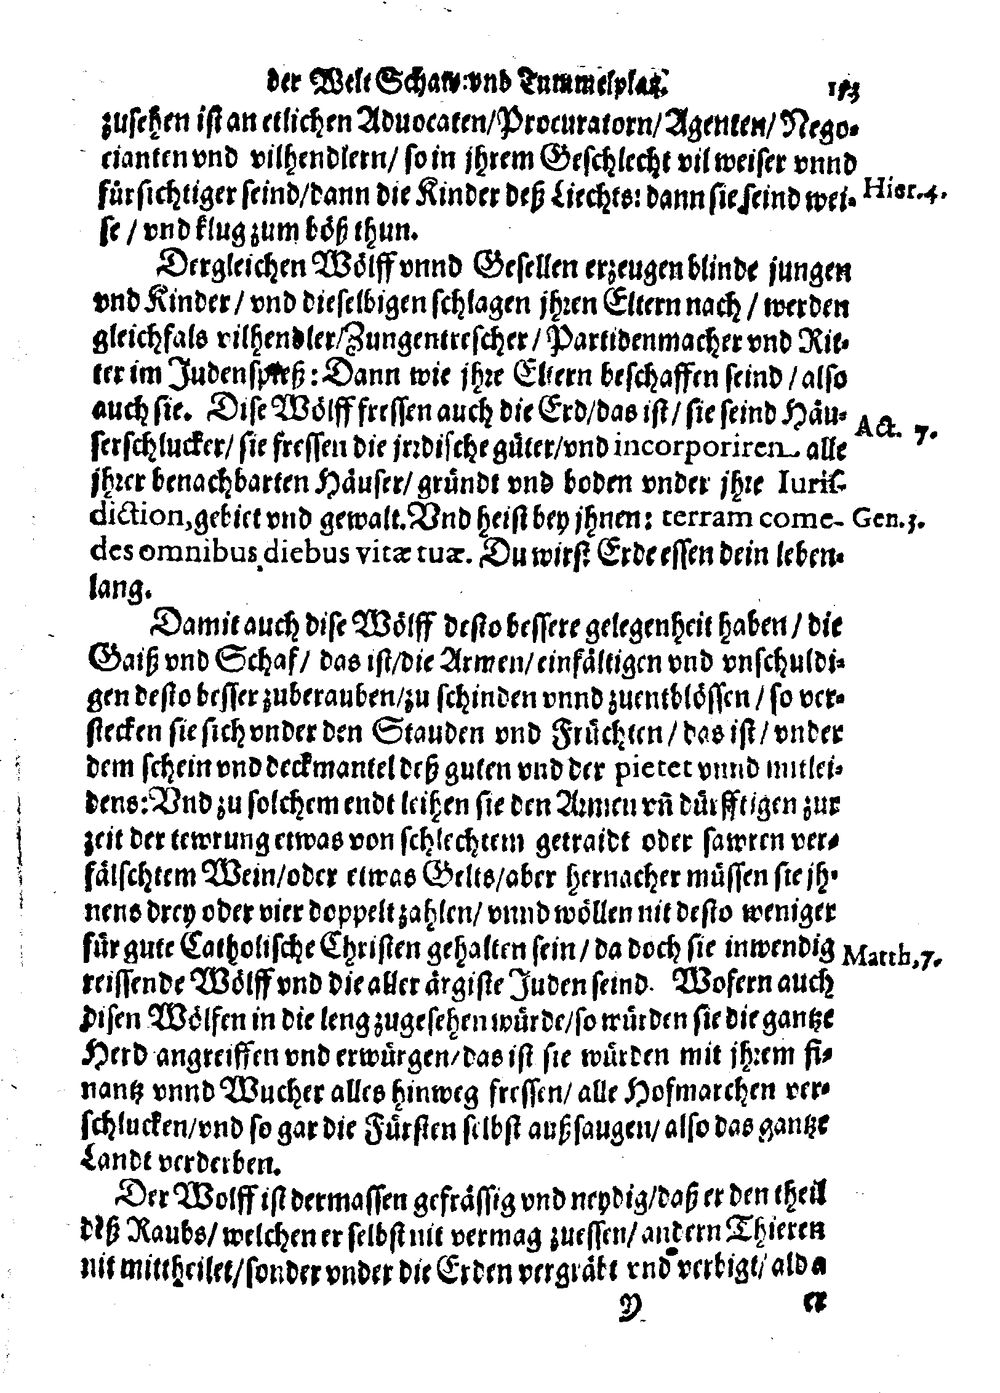 der Welt Schaw: vnd Tummelplatz.
zusehen ist an etlichen Aduocaten/Procuratorn/Agenten/Nego-
cianten vnd vilhendlern/ so in jhrem Geschlecht vil weiser vnnd
fürsichtiger seind/dann die Kinder deß Liechts: dann sie seind wei- Hier. 4.
se / vnd klug zum böß thun.
Dergleichen Wölff vnnd Gesellen erzeugen blinde jungen
vnd Kinder/ vnd dieselbigen schlagen jhren Eltern nach / werden
gleichfals vilhendler/Zungentrescher/ Partidenmacher vnd Rit-
ter im Judenspieß: Dann wie jhre Eltern beschaffen seind / also
auch sie. Dise Wölff fressen auch die Erd/das ist/ sie seind Häu- Act. 7.
serschlucker/ sie fressen die jrrdische güter/vnd incorporiren alle
jhrer benachbarten Häuser/ gründt vnd boden vnder jhre Iuris-
diction, gebiet vnd gewalt. Vnd heist bey jhnen: terram come- Gen. 3.
des omnibus diebus vitæ tuæ. Du wirst Erde essen dein leben-
lang.
Damit auch dise Wölff desto bessere gelegenheit haben / die
Gaiß vnd Schaf/ das ist/die Armen/einfältigen vnd vnschuldi-
gen desto besser zuberauben/zu schinden vnnd zuentblössen / so ver-
stecken sie sich vnder den Stauden vnd Früchten / das ist / vnder
dem schein vnd deckmantel deß guten vnd der pietet vnnd mitlei-
dens: Vnd zu solchem endt leihen sie den Armen vñ dürfftigen zur
zeit der tewrung etwas von schlechtem getraidt oder sawren ver-
fälschtem Wein/oder etwas Gelts/aber hernacher müssen sie jh-
nens drey oder vier doppelt zahlen/ vnnd wöllen nit desto weniger
für gute Catholische Christen gehalten sein/ da doch sie inwendig Matth. 7.
reissende Wölff vnd die aller ärgiste Juden seind. Wofern auch
disen Wölfen in die leng zugesehen würde/so würden sie die gantze
Herd angreiffen vnd erwürgen/das ist sie würden mit jhrem fi-
nantz vnnd Wucher alles hinweg fressen/ alle Hofmarchen ver-
schlucken/vnd so gar die Fürsten selbst außsaugen/ also das gantze
Landt verderben.
Der Wolff ist dermassen gefrässig vnd neydig/daß er den theil
deß Raubs/ welchen er selbst nit vermag zuessen/ andern Thieren
nit mittheilet/sonder vnder die Erden vergräbt vnd verbigt/ alda
Y er